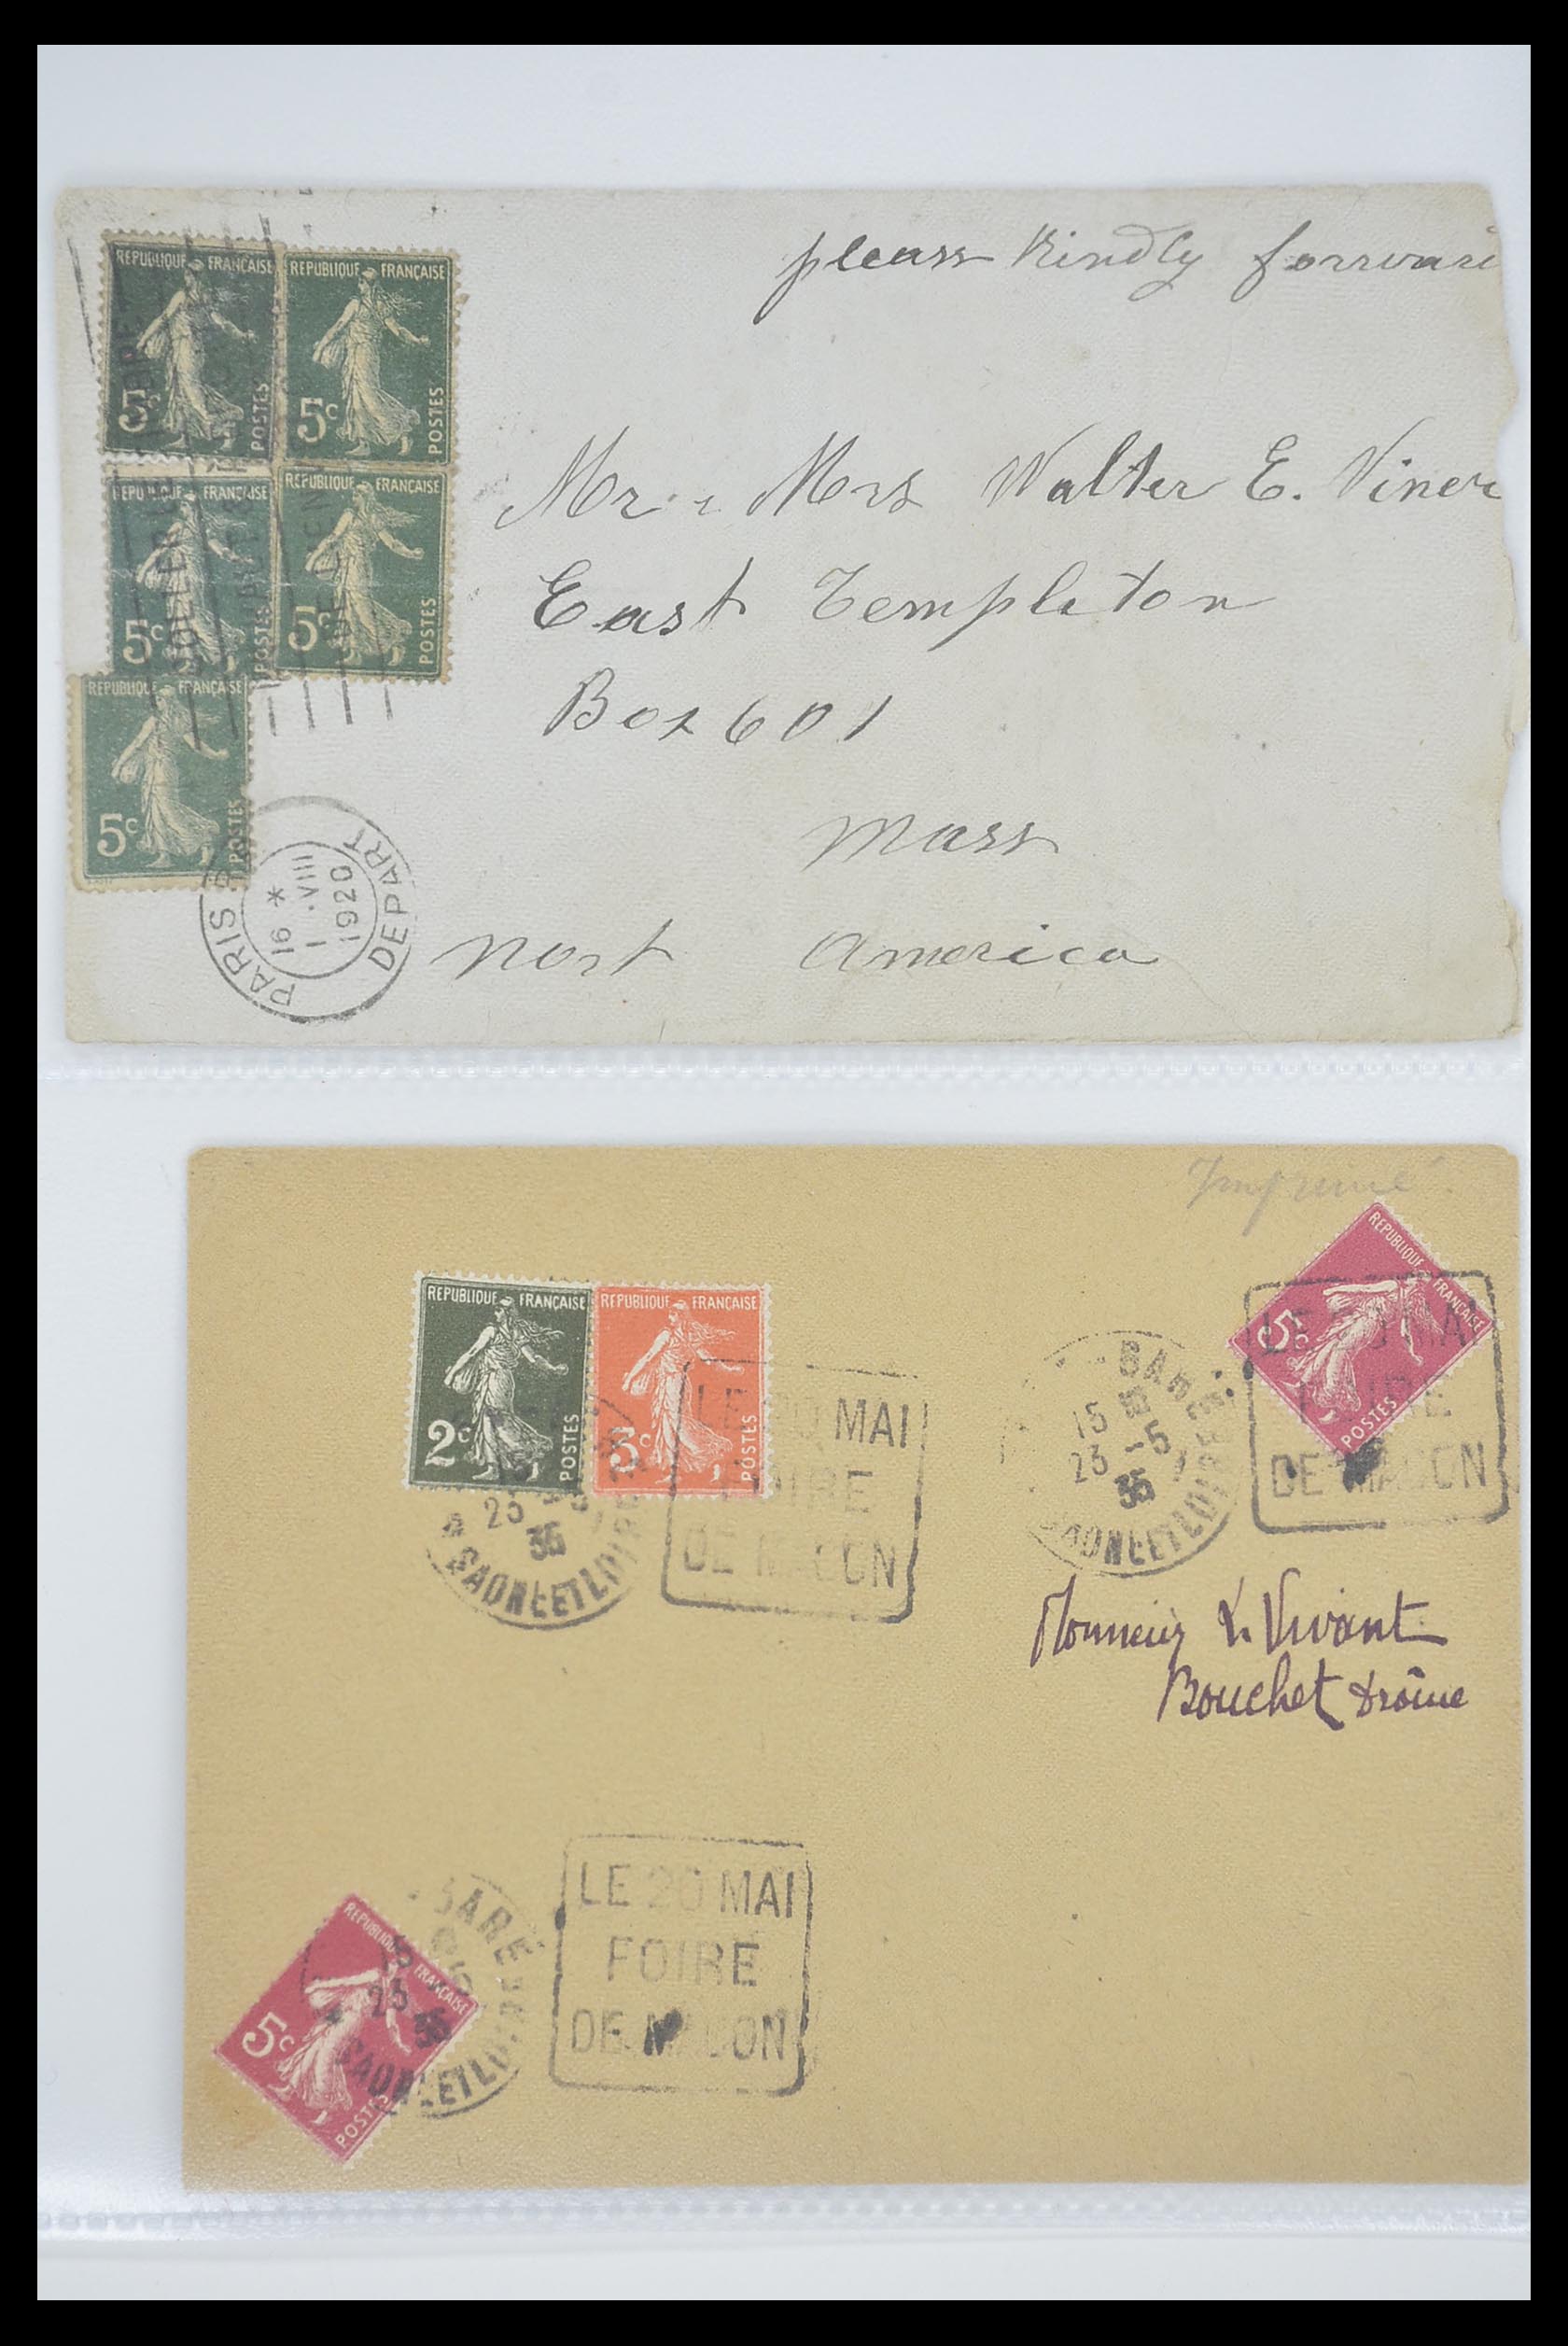 please Kindly forward
REPUBLIQUE FRANÇAISE
5c POSTES
REPUBLIQUE FRANÇAISE
5c POSTES
REPUBLIQUE FRANÇAISE
5c POSTES
REPUBLIQUE FRANÇAISE
5c POSTES
REPUBLIQUE FRANÇAISE
5c POSTES
Mr & Mrs Walter E. Viner
East Templeton
Box 601
Mass
Nort America
PARIS
16 *
1 .VIII
1920
DEPART
Imprimé
REPUBLIQUE FRANÇAISE
5c POSTES
REPUBLIQUE FRANÇAISE
2c POSTES
REPUBLIQUE FRANÇAISE
3c POSTES
LE 20 MAI
FOIRE
DE MACON
15
23 -5
35
SAONE ET LOIRE
LE 20 MAI
FOIRE
DE MACON
23
35
SAONE ET LOIRE
Monsieur L. Vivant
Bouchet Drôme
LE 20 MAI
FOIRE
DE MACON
REPUBLIQUE FRANÇAISE
5c POSTES
15
23
35
SAONE ET LOIRE